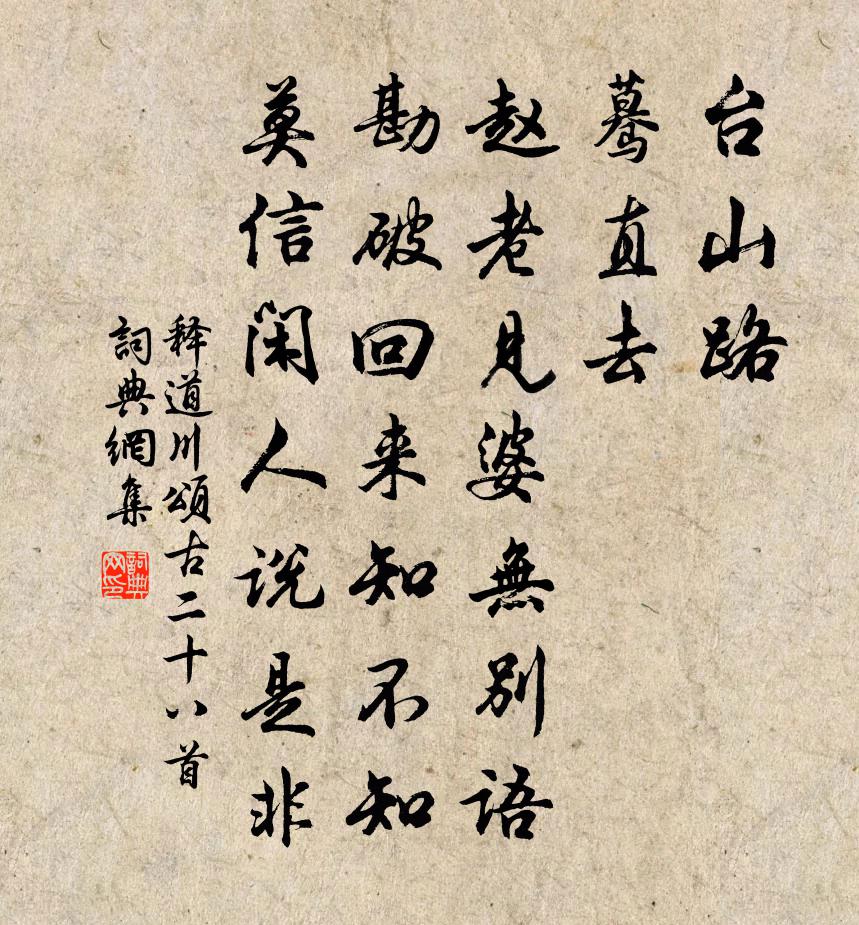 台山路
蓦直去
赵老见婆無别语
勘破回来知不知
莫信闲人说是非
释道川頌古二十八首
詞典網集
詞典网印